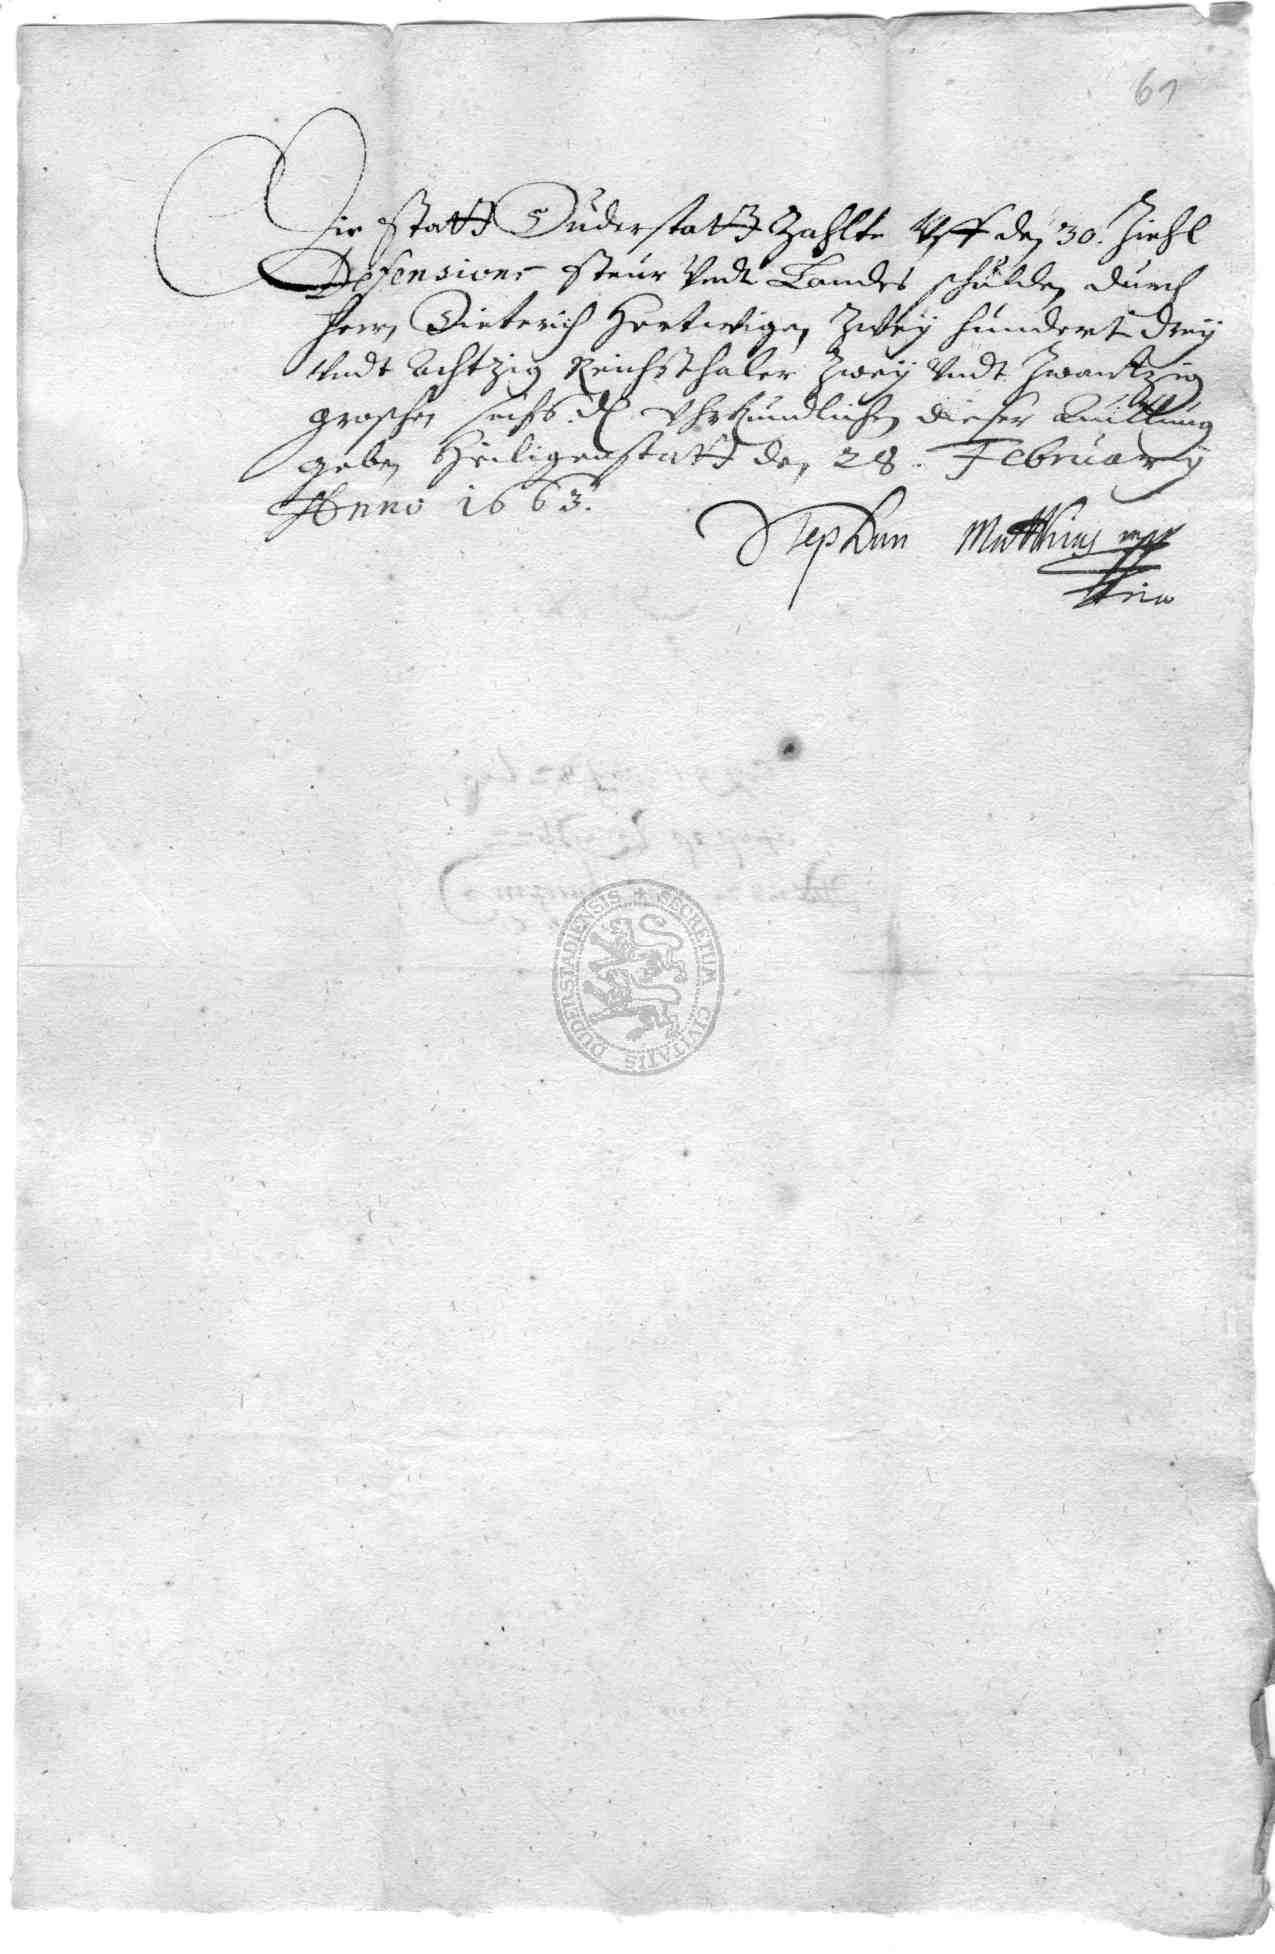 61
Die Statt Duderstatt Zahlte Vff den 30. Ziehl
Defensions steur Vndt Landes schulden durch
Herrn Dieterich Hertwigen Zwey hundert drey
Vndt Achtzig Reichsthaler Zwey Vndt Zwantzig
groschen sechs d Vhrkundlichen dieser Quittung
geben Heiligenstatt den 28. February
Anno 1663.
Stephan Matthias
SECRETUM CIVITATIS DUDERSTADIENSIS